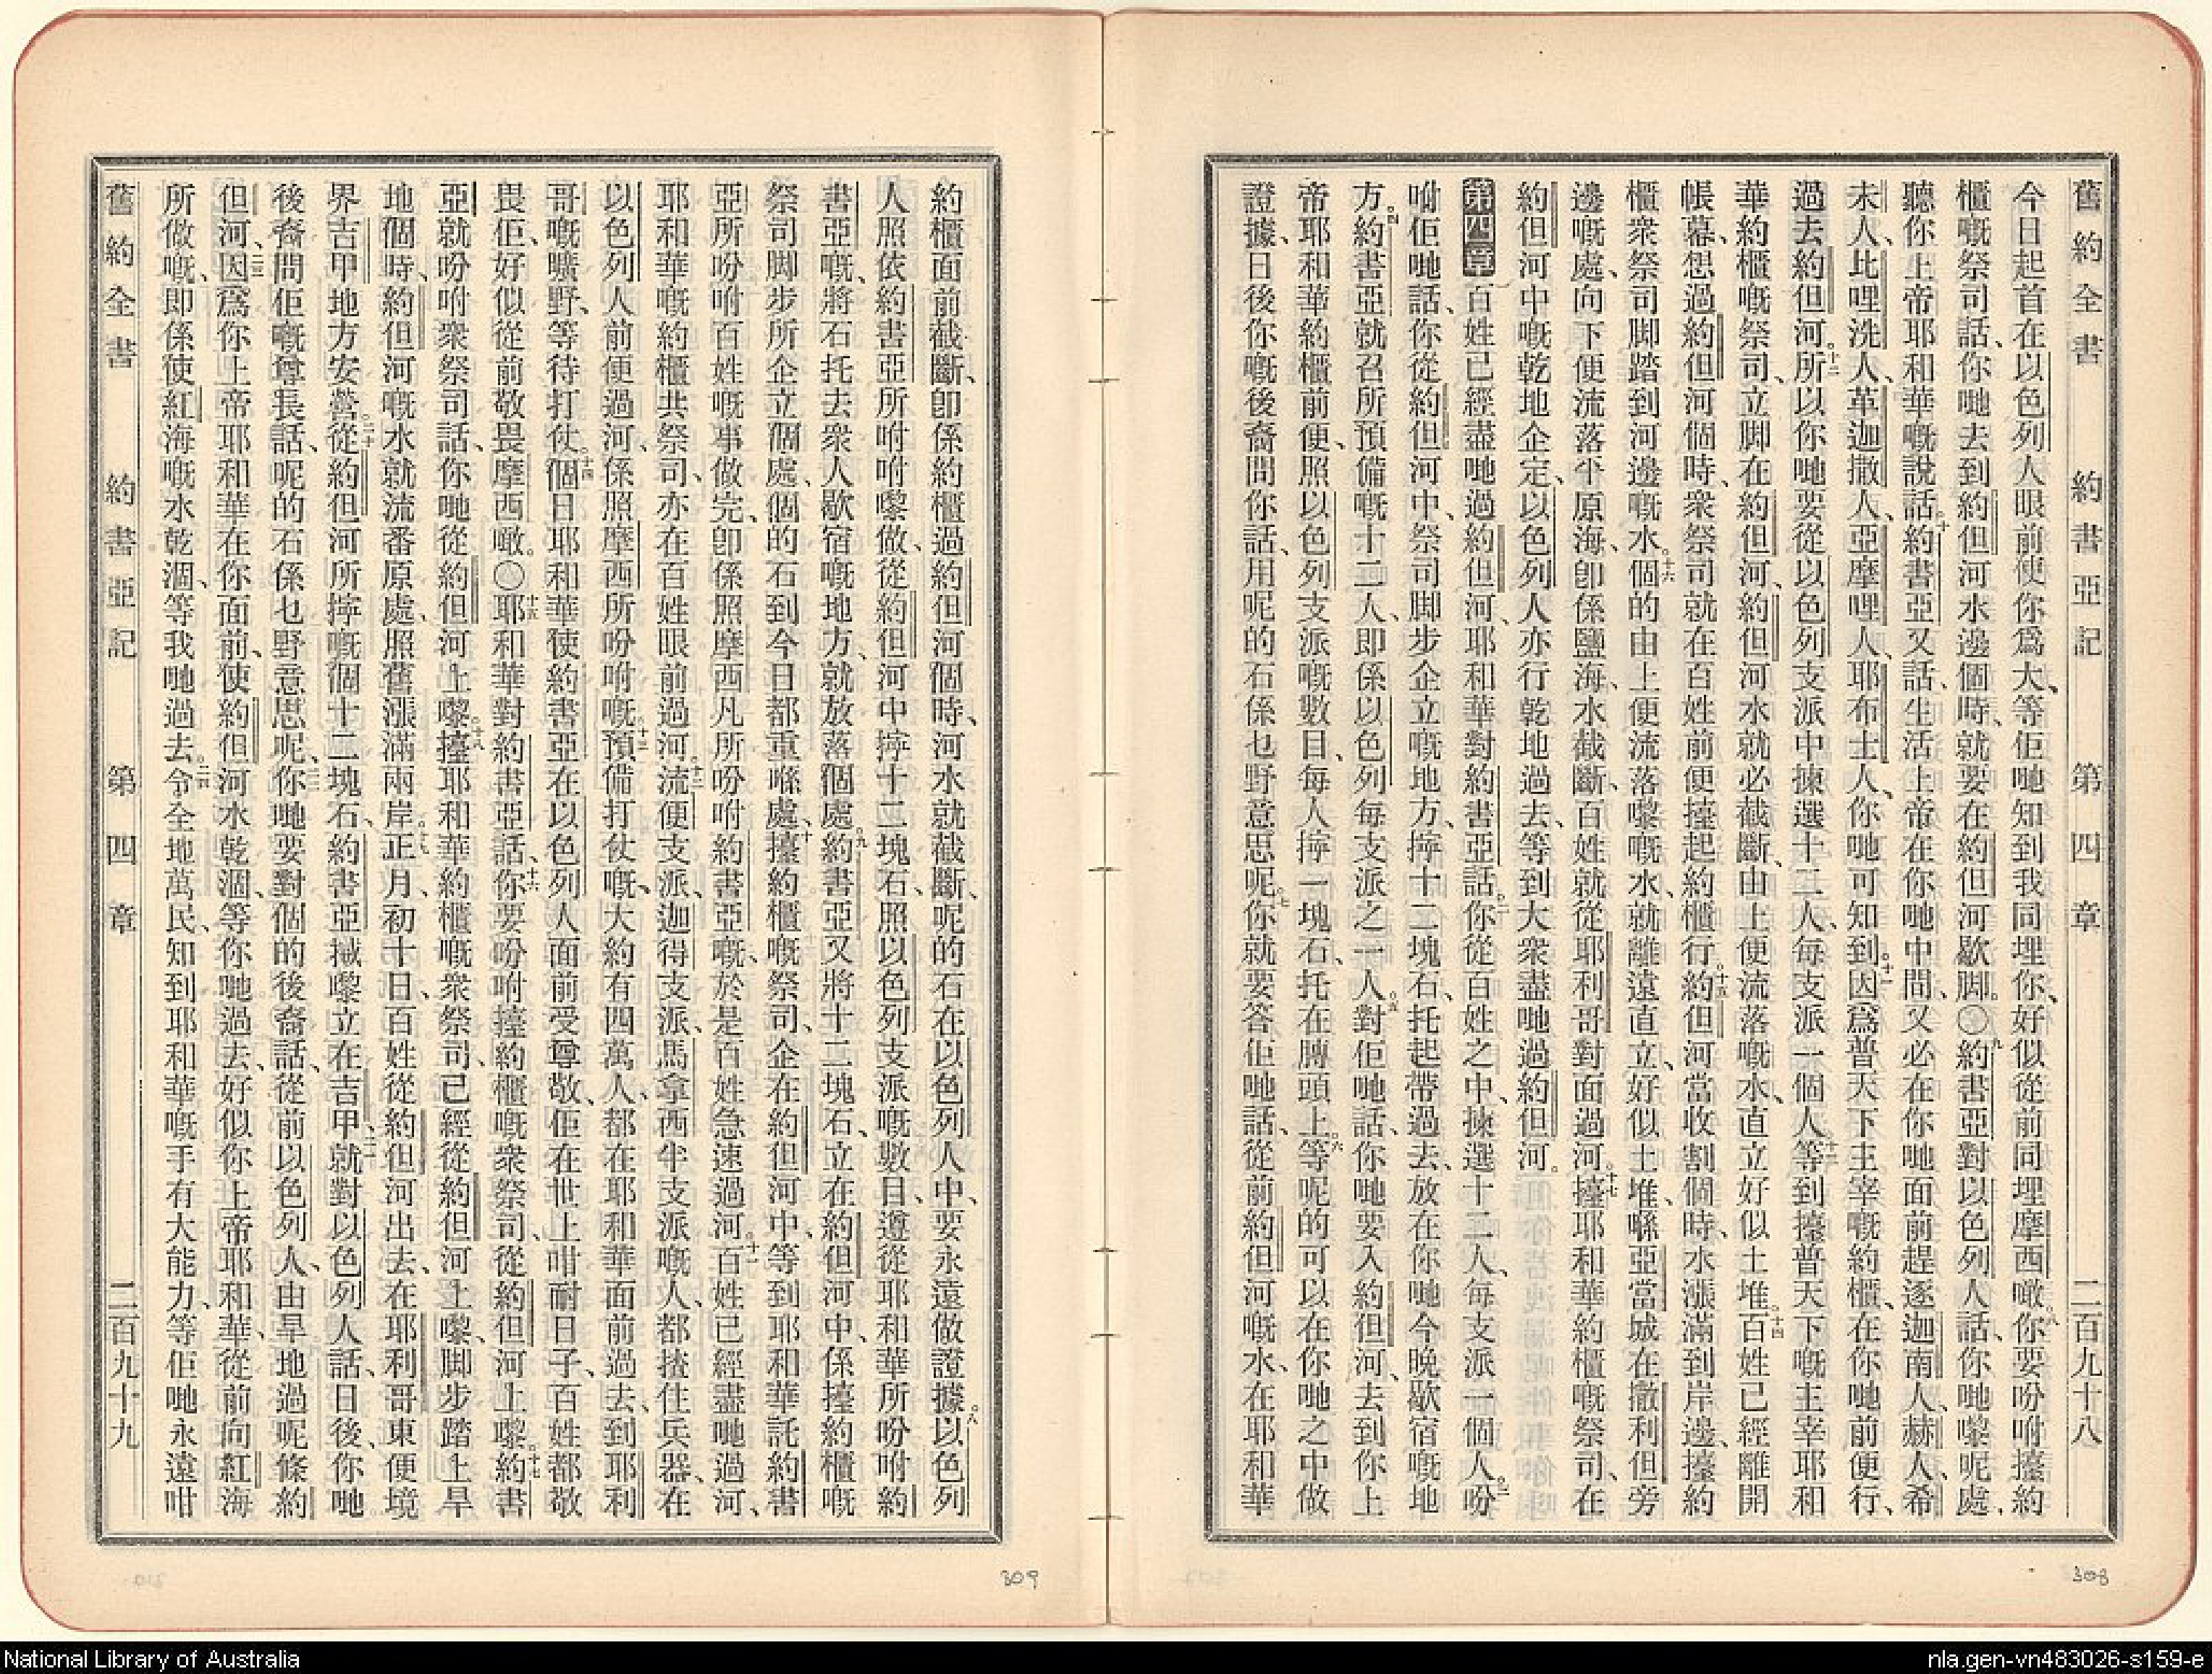 舊約全書 約書亞記 第四章 二百九十八
今日起首在以色列人眼前使你爲大、等佢哋知到我同埋你、好似從前同埋摩西噉。八你要吩咐擡約
櫃嘅祭司話、你哋去到約但河水邊個時、就要在約但河歇脚。〇九約書亞對以色列人話、你哋嚟呢處、
聽你上帝耶和華嘅說話。十約書亞又話、生活上帝在你哋中間、又必在你哋面前趕逐迦南人、赫人、希
未人、比哩洗人、革迦撒人、亞摩哩人、耶布士人、你哋可知到。十一因爲普天下主宰嘅約櫃、在你哋前便行、
過去約但河。十二所以你哋要從以色列支派中揀選十二人、每支派一個人。十三等到擡普天下嘅主宰耶和
華約櫃嘅祭司、立脚在約但河、約但河水就必截斷、由上便流落嘅水、直立好似土堆。十四百姓已經離開
帳幕、想過約但河個時、衆祭司就在百姓前便擡起約櫃行。十五約但河當收割個時、水漲滿到岸邊、擡約
櫃衆祭司脚踏到河邊嘅水。十六個的由上便流落嚟嘅水、就離遠直立、好似土堆、喺亞當城在撒利但旁
邊嘅處、向下便流落平原海、卽係鹽海、水截斷、百姓就從耶利哥對面過河。十七擡耶和華約櫃嘅祭司、在
約但河中嘅乾地企定、以色列人亦行乾地過去、等到大衆盡哋過約但河。
第四章 百姓已經盡哋過約但河、耶和華對約書亞話、二你從百姓之中、揀選十二人、每支派一個人。三吩
咐佢哋話、你從約但河中、祭司脚步企立嘅地方、擰十二塊石、托起帶過去、放在你哋今晚歇宿嘅地
方。四約書亞就召所預備嘅十二人、即係以色列每支派之一人。五對佢哋話、你哋要入約但河、去到你上
帝耶和華約櫃前便、照以色列支派嘅數目、每人擰一塊石、托在膊頭上。六等呢的可以在你哋之中做
證據、日後你嘅後裔問你話、用呢的石係乜野意思呢。七你就要答佢哋話、從前約但河嘅水、在耶和華
約櫃面前截斷、卽係約櫃過約但河個時、河水就截斷、呢的石在以色列人中、要永遠做證據。八以色列
人照依約書亞所吩咐嚟做、從約但河中擰十二塊石、照以色列支派嘅數目、遵從耶和華所吩咐約
書亞嘅、將石托去衆人歇宿嘅地方、就放落個處。九約書亞又將十二塊石、立在約但河中、係擡約櫃嘅
祭司脚步所企立個處、個的石到今日都重喺處。十擡約櫃嘅祭司、企在約但河中、等到耶和華託約書
亞所吩咐百姓嘅事做完、卽係照摩西凡所吩咐約書亞嘅、於是百姓急速過河。十一百姓已經盡哋過河、
耶和華嘅約櫃共祭司、亦在百姓眼前過河。十二流便支派、迦得支派、馬拿西半支派嘅人、都揸住兵器、在
以色列人前便過河、係照摩西所吩咐嘅。十三預備打仗嘅、大約有四萬人、都在耶和華面前過去、到耶利
哥嘅曠野、等待打仗。十四個日耶和華使約書亞在以色列人面前受尊敬、佢在世上咁耐日子、百姓都敬
畏佢、好似從前敬畏摩西噉。〇十五耶和華對約書亞話、十六你要吩咐擡約櫃嘅衆祭司、從約但河上嚟。十七約書
亞就吩咐衆祭司話、你哋從約但河上嚟。十八擡耶和華約櫃嘅衆祭司、已經從約但河上嚟、脚步踏上旱
地個時、約但河嘅水就流番原處、照舊漲滿兩岸。十九正月初十日、百姓從約但河出去、在耶利哥東便境
界吉甲地方安營。二十從約但河所擰嘅個十二塊石、約書亞搣嚟立在吉甲。二一就對以色列人話、日後、你哋
後裔問佢嘅尊長話、呢的石係乜野意思呢、二二你哋要對個的後裔話、從前以色列人、由旱地過呢條約
但河、二三因爲你上帝耶和華在你面前、使約但河水乾涸、等你哋過去、好似你上帝耶和華、從前向紅海
所做嘅、即係使紅海嘅水乾涸、等我哋過去。二四令全地萬民、知到耶和華嘅手有大能力、等佢哋永遠咁
舊約全書 約書亞記 第四章 二百九十九
308
309
National Library of Australia
nla.gen-vn483026-s159-e